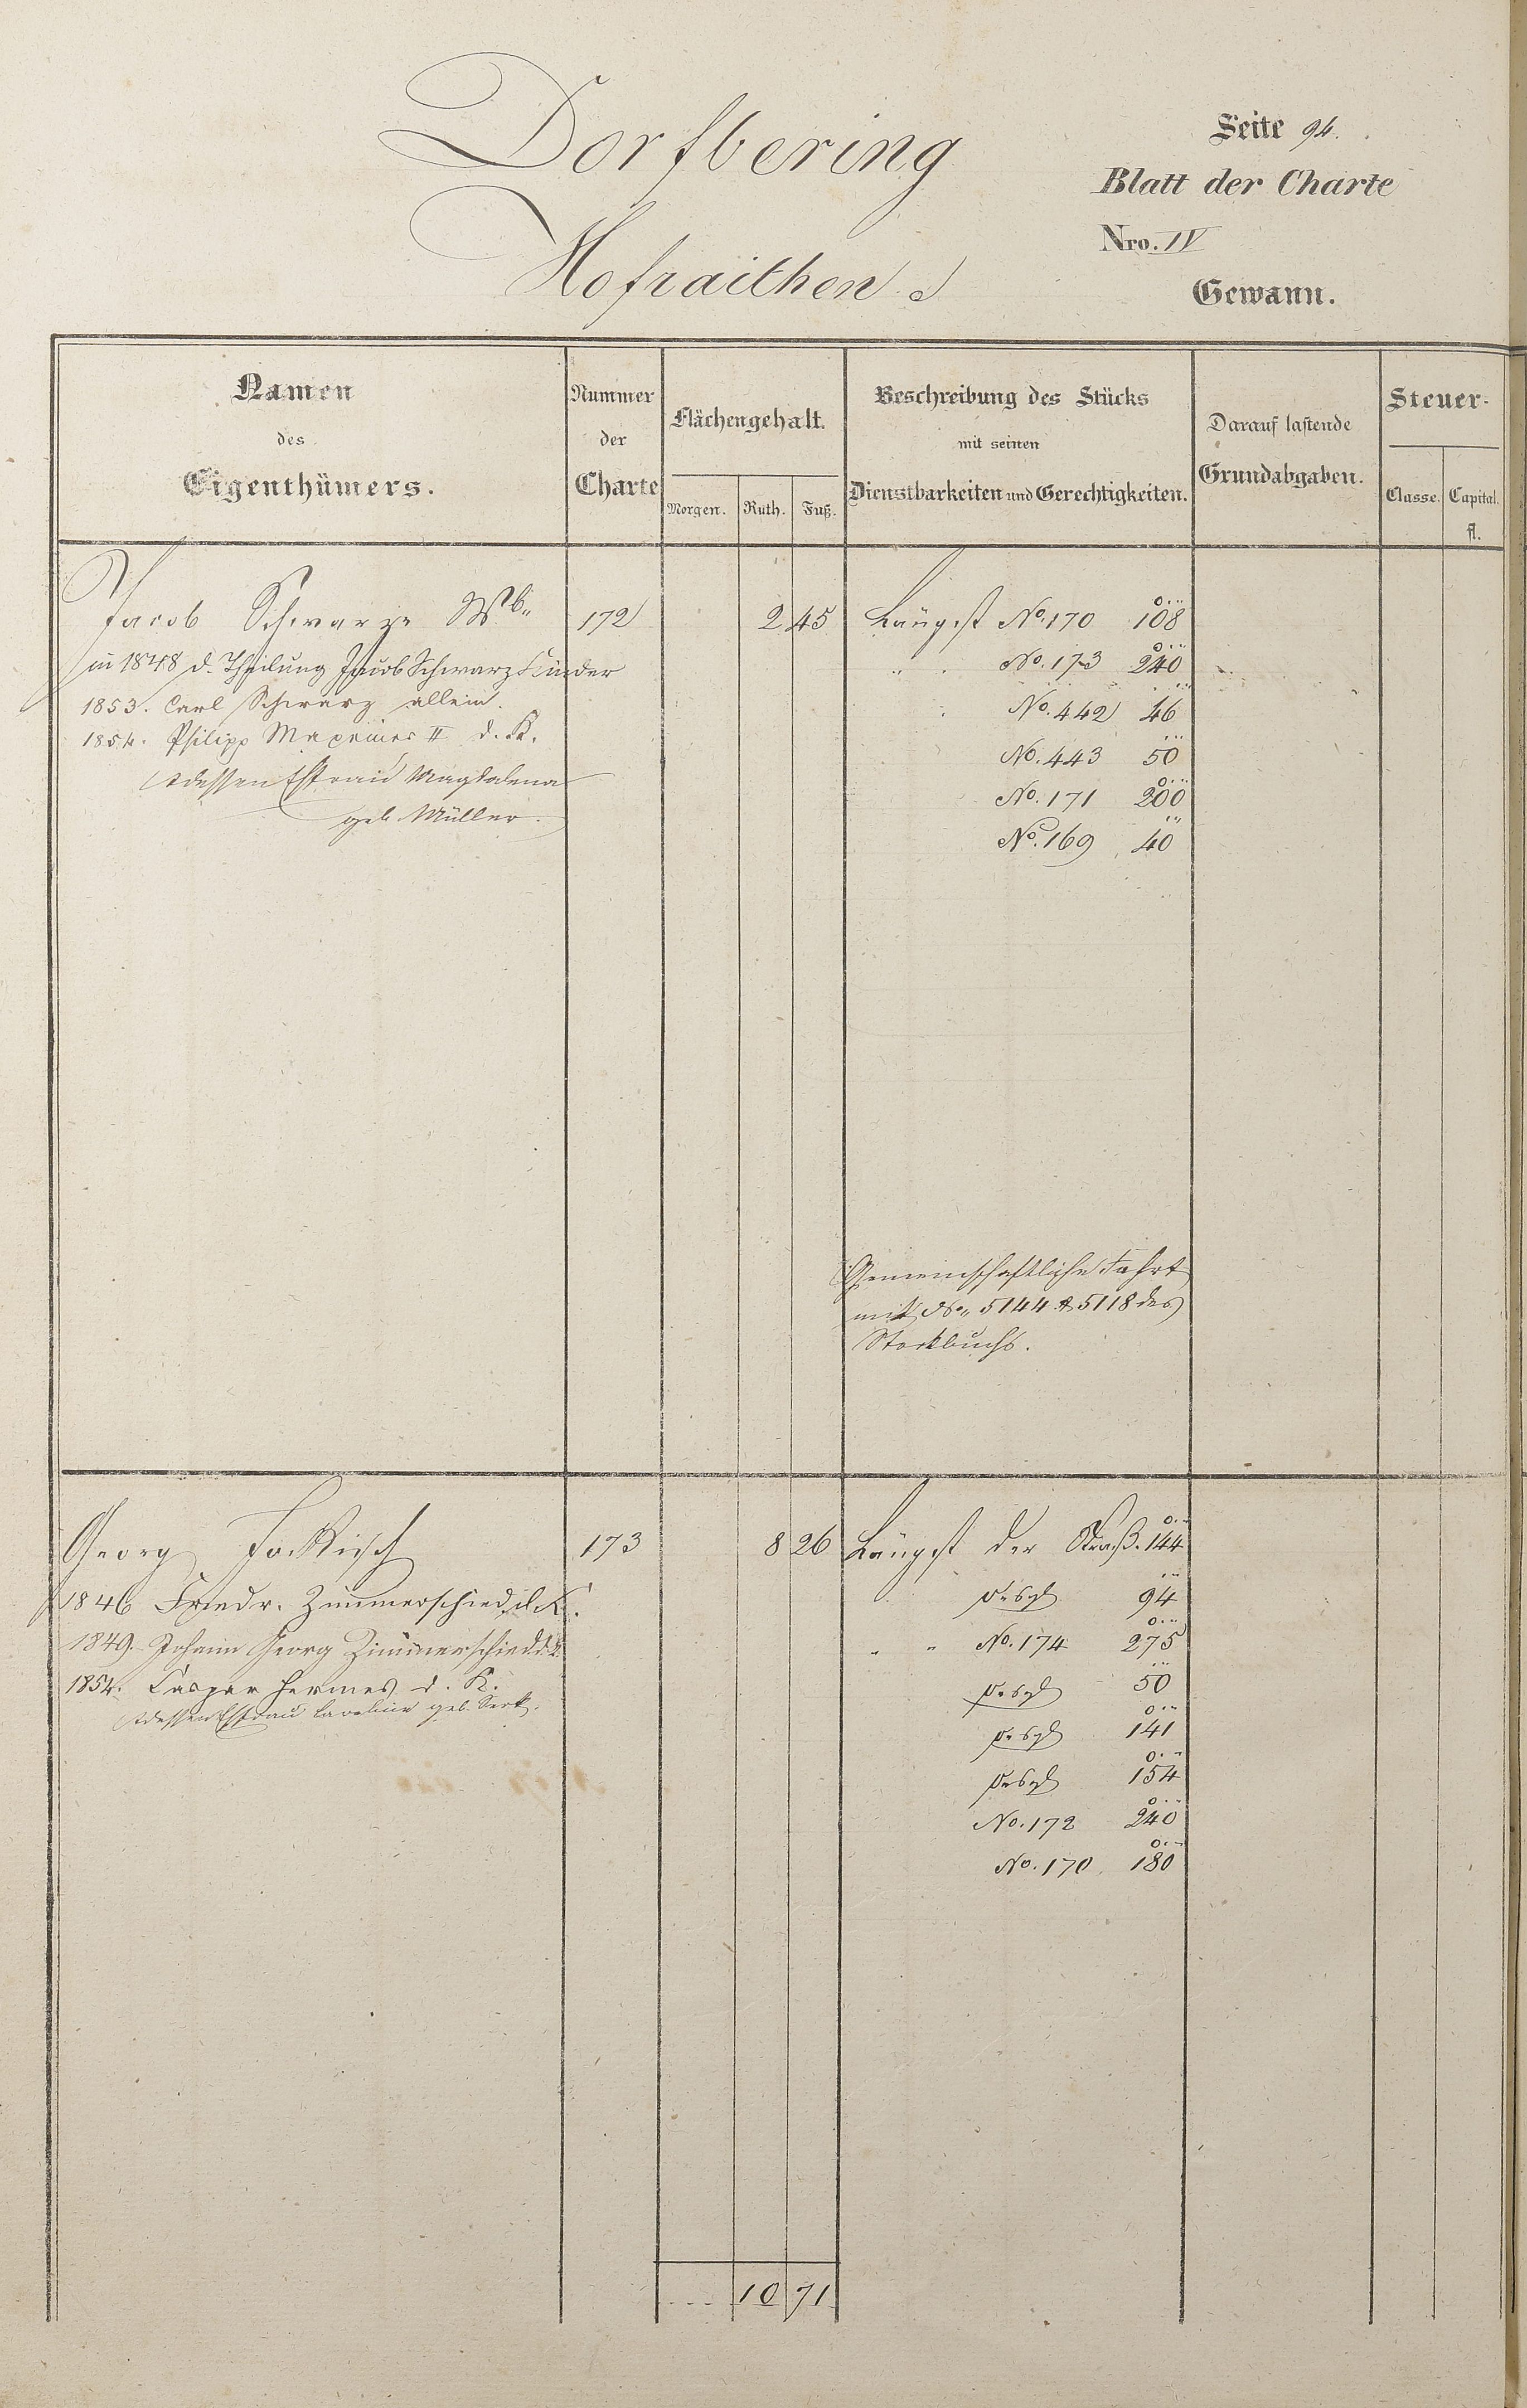 Dorfbering
Hofraithen
Seite 94.
Blatt der Charte
Nro. IV
Gewann.
Namen
des
Eigenthümers.
Nummer
der
Charte
Flächengehalt.
Morgen. Ruth. Fuß.
Beschreibung des Stücks
mit seinen
Dienstbarkeiten und Gerechtigkeiten.
Darauf lastende
Grundabgaben.
Steuer-
Classe. Capital.
fl.
Jacob Schwarz Wb. 172 2 45 Längst No. 170 108
in 1848 d. Theilung Jacob Schwarz Kinder " " No. 173 240
1853. Carl Schwarz allein. No. 442 46
1854. Philipp Maxeiner II d. K. No. 443 50
dessen Ehefrau Magdalena No. 171 200
geb. Müller. No. 169 40
Gemeinschaftliche Fahrt
mit No. 5144 & 5118 des
Stockbuchs.
Georg 173 8 26 Längst der Straß. 144
1846 Friedr. Zimmerschied d. K. 94
1849. Johann Georg Zimmerschied d. K. " " No. 174 275
1854. Caspar Hermes d. K. 50
dessen Ehefrau Caroline geb. 141
154
No. 172 240
No. 170 180
10 71